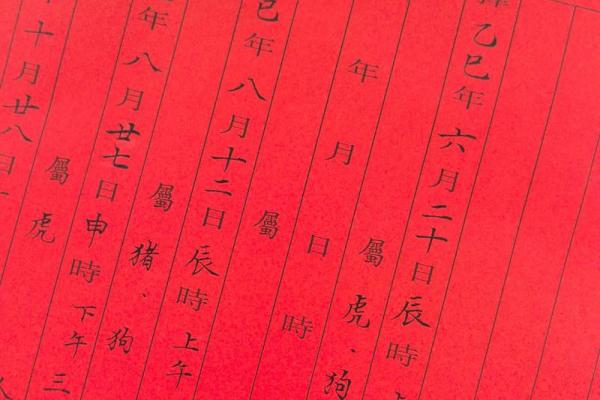 乙巳年六月二十日辰時
屬虎、狗
年月日時
屬
巳年八月十二日辰時上午
屬猪、狗
年八月廿七日申時下午三
屬虎
十月廿八日